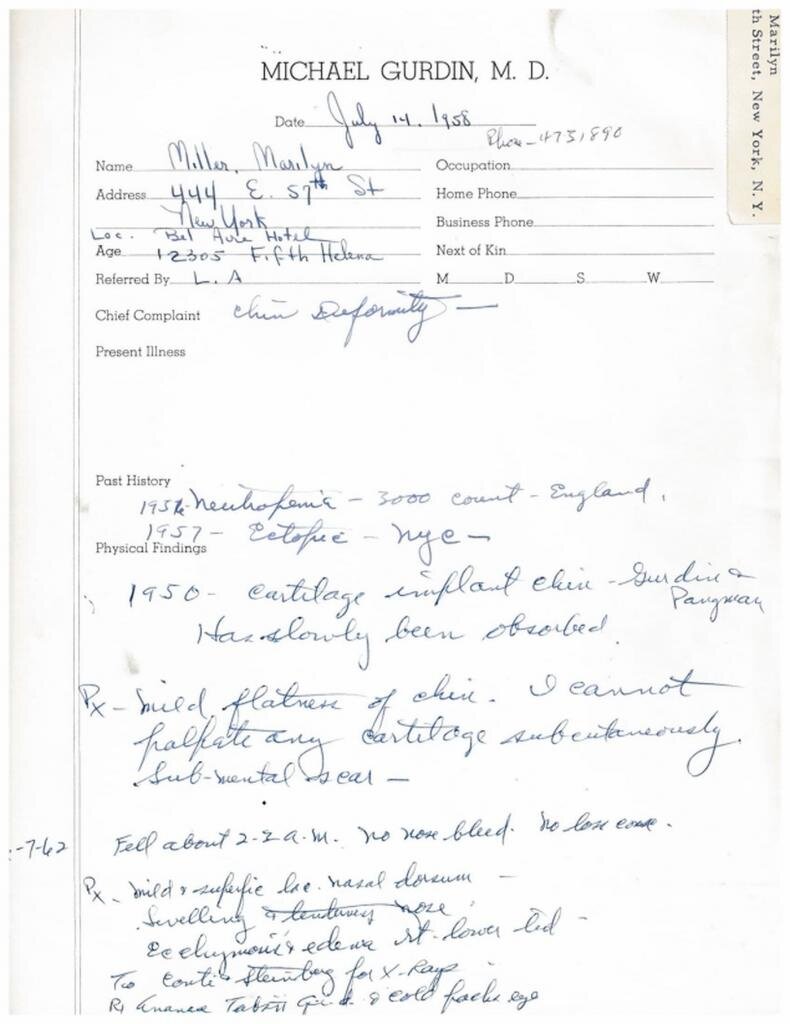 Marilyn
th Street, New York, N. Y.
MICHAEL GURDIN, M. D.
Date July 14, 1958
Phone - 4731890
Name Miller, Marilyn
Occupation
Address 444 E. 57th St
Home Phone
New York
Business Phone
Loc. Bel Aire Hotel
Age 12305 Fifth Helena
Next of Kin
Referred By L. A
M D S W
Chief Complaint Chin Deformity -
Present Illness
Past History
Neutropenia - 3000 count - England.
1957 - Ectopic - NYC -
Physical Findings
1950 - cartilage implant chin - Gurdin &
Pangman
Has slowly been absorbed.
Px - mild flatness of chin. I cannot
palpate any cartilage subcutaneously.
Sub-mental scar -
-7-62 Fell about 2-3 a.m. No nose bleed. No lose
Px - mild & superfic lac. nasal dorsum -
Swelling & tenderness nose
Ecchymosis & edema rt. lower lid -
To Conti & Steinberg for X-Rays
Rx & cold packs eye